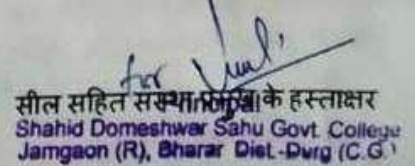 for
सील सहित संस्था प्रमुख के हस्ताक्षर
Shahid Domeshwar Sahu Govt. College
Jamgaon (R), Bharar Dist.-Durg (C.G.)